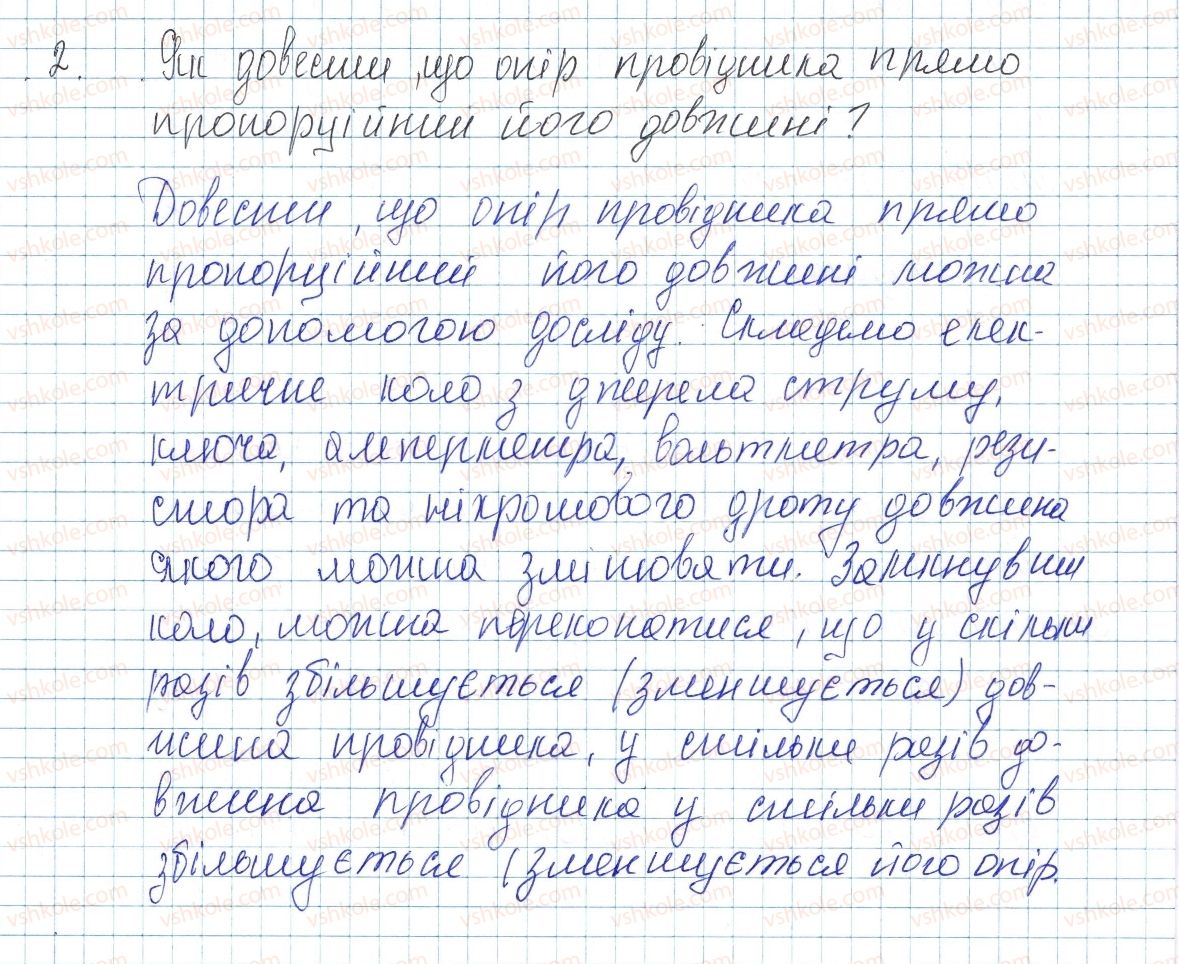 2. Як довести, що опір провідника прямо
пропорційний його довжині?
Довести, що опір провідника прямо
пропорційний його довжині можна
за допомогою досліду. Складемо елек-
тричне коло з джерела струму,
ключа, амперметра, вольтметра, рези-
стора та ніхромового дроту довжина
якого можна змінювати. Замкнувши
коло, можна переконатися, що у скільки
разів збільшується (зменшується) дов-
жина провідника, у стільки разів до-
вжина провідника у стільки разів
збільшується (зменшується його опір.